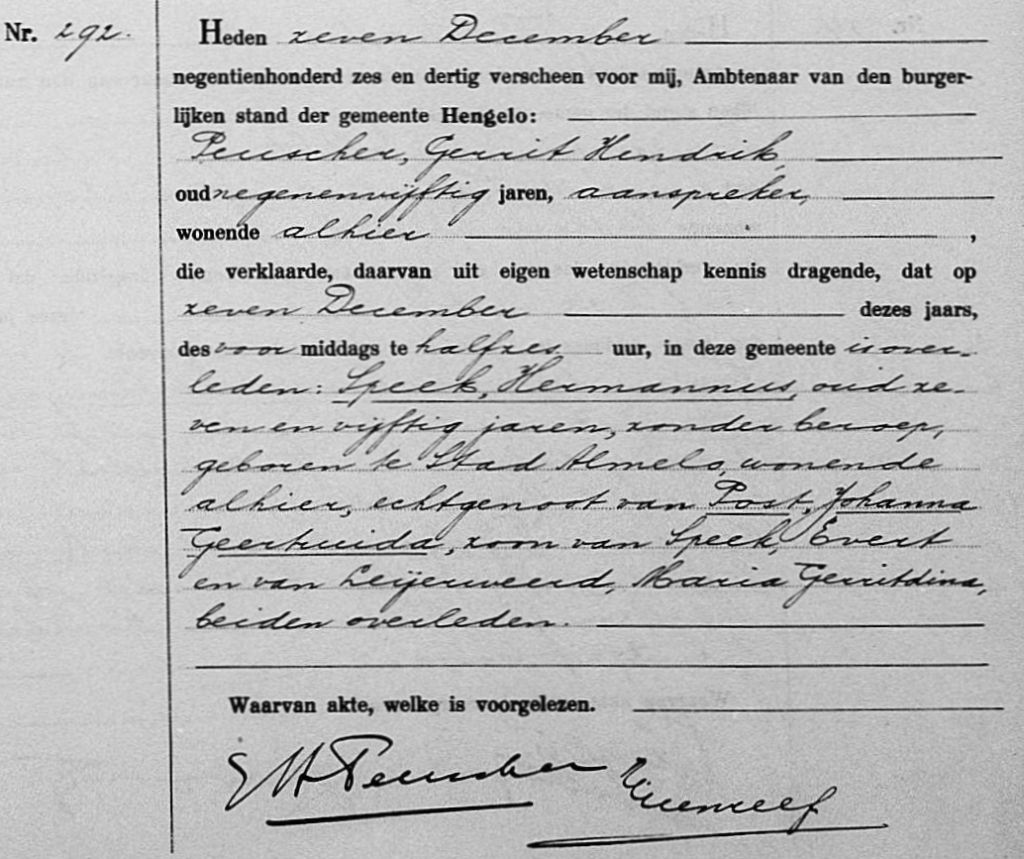 Nr. 292.
Heden zeven December
negentienhonderd zes en dertig verscheen voor mij, Ambtenaar van den burger-
lijken stand der gemeente Hengelo:
Peuscher, Gerrit Hendrik,
oud negenenvijftig jaren, aanspreker,
wonende alhier ,
die verklaarde, daarvan uit eigen wetenschap kennis dragende, dat op
zeven December dezes jaars,
des voor middags te halfzes uur, in deze gemeente is over-
leden: Speek, Hermannus, oud ze-
ven en vijftig jaren, zonder beroep,
geboren te Stad Almelo, wonende
alhier, echtgenoot van Post, Johanna
Geertruida, zoon van Speek, Evert
en van Leijerweerd, Maria Gerritdina,
beiden overleden.
Waarvan akte, welke is voorgelezen.
GHPeuscher